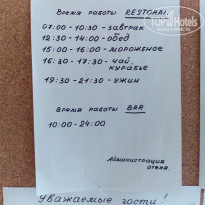 Время работы RESTORAN
07:00 - 10:30 - завтрак
12:30 - 14:00 - обед
15:00 - 16:00 - мороженое
16:30 - 17:30 - чай,
курабье
19:30 - 21:30 - ужин
Время работы BAR
10:00 - 24:00
Администрация
отеля.
Уважаемые гости!